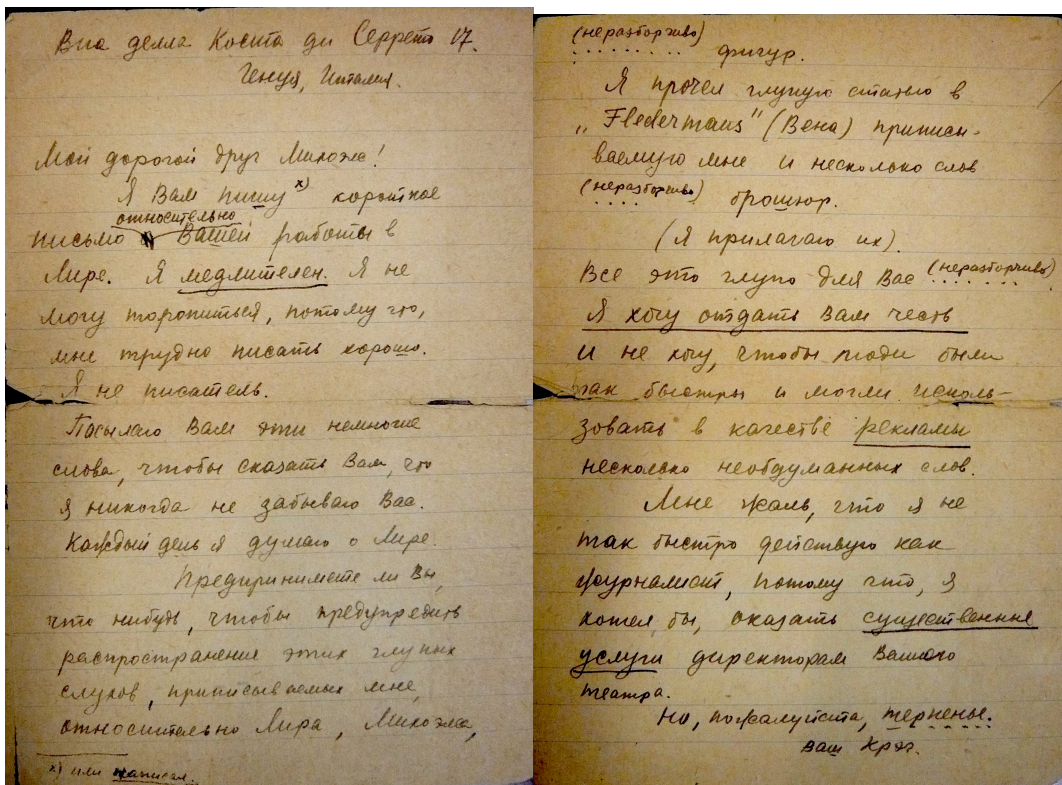 Виа делла Коста ди Серрето 17.
Генуя, Италия.
Мой дорогой друг Михоэлс!
Я Вам пишу x) короткое
относительно
письмо Вашей работы в
Лире. Я медлителен. Я не
могу торопиться, потому что,
мне трудно писать хорошо.
Я не писатель.
Посылаю Вам эти немногие
слова, чтобы сказать Вам, что
я никогда не забываю Вас.
Каждый день я думаю о Лире.
Предпринимаете ли Вы,
что нибудь, чтобы предупредить
распространение этих глупых
слухов, приписываемых мне
относительно Лира, Михоэлса,
x) или написал.
(неразборчиво)
. . . . . . . . фигур.
Я прочел глупую статью в
„Fledermaus" (Вена) приписы-
ваемую мне и несколько слов
(неразборчиво)
. . . . . брошюр.
(Я прилагаю их).
Все это глупо для Вас (неразборчиво)
. . . . . . .
Я хочу отдать Вам честь
и не хочу, чтобы люди были
так быстры и могли исполь-
зовать в качестве рекламы
несколько необдуманных слов.
Мне жаль, что я не
так быстро действую как
журналист, потому что, я
хотел бы, оказать существенные
услуги директорам Вашего
театра.
Но, пожалуйста, терпенье.
Ваш Крэг.